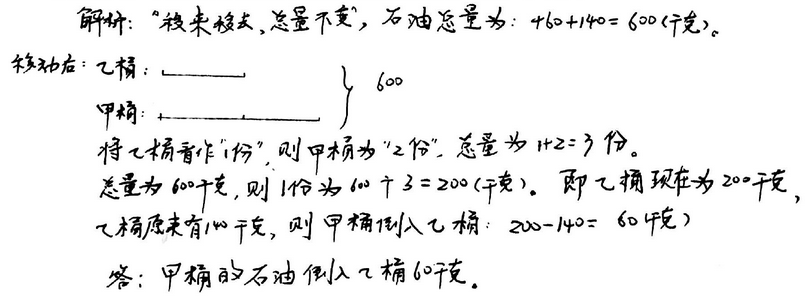 解析："移来移去，总量不变"，石油总量为：460+140=600(千克)。
移动后：乙桶：
600
甲桶：
将乙桶看作"1份"，则甲桶为"2份"，总量为1+2=3份。
总量为600千克，则1份为600÷3=200(千克)。即乙桶现在为200千克，
乙桶原来有140千克，则甲桶倒入乙桶：200-140=60(千克)
答：甲桶的石油倒入乙桶60千克。